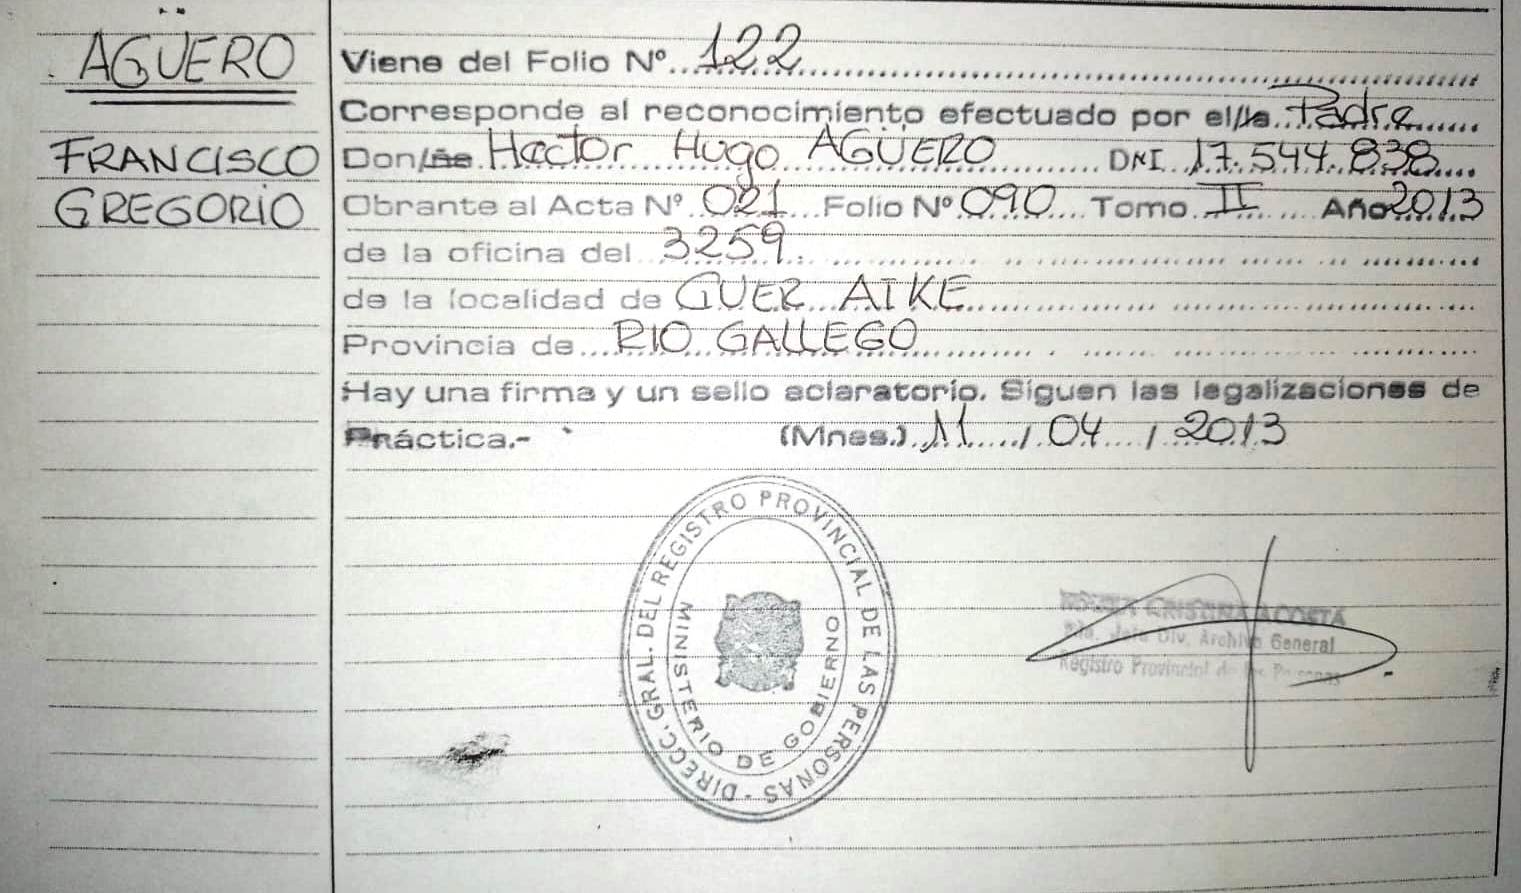 AGÜERO
FRANCISCO
GREGORIO
Viene del Folio Nº 122
Corresponde al reconocimiento efectuado por el/la Padre
Don/ña Hector Hugo AGÜERO DNI 17.544.838
Obrante al Acta Nº 021 Folio Nº 090 Tomo II Año 2013
de la oficina del 3259
de la localidad de GUER AIKE
Provincia de RIO GALLEGO
Hay una firma y un sello aclaratorio. Siguen las legalizaciones de
Práctica.- (Mnes.) 11 / 04 / 2013
DIRECC. GRAL. DEL REGISTRO PROVINCIAL DE LAS PERSONAS -
MINISTERIO DE GOBIERNO
CRISTINA ACOSTA
Jefa Div. Archivo General
Registro Provincial de las Personas